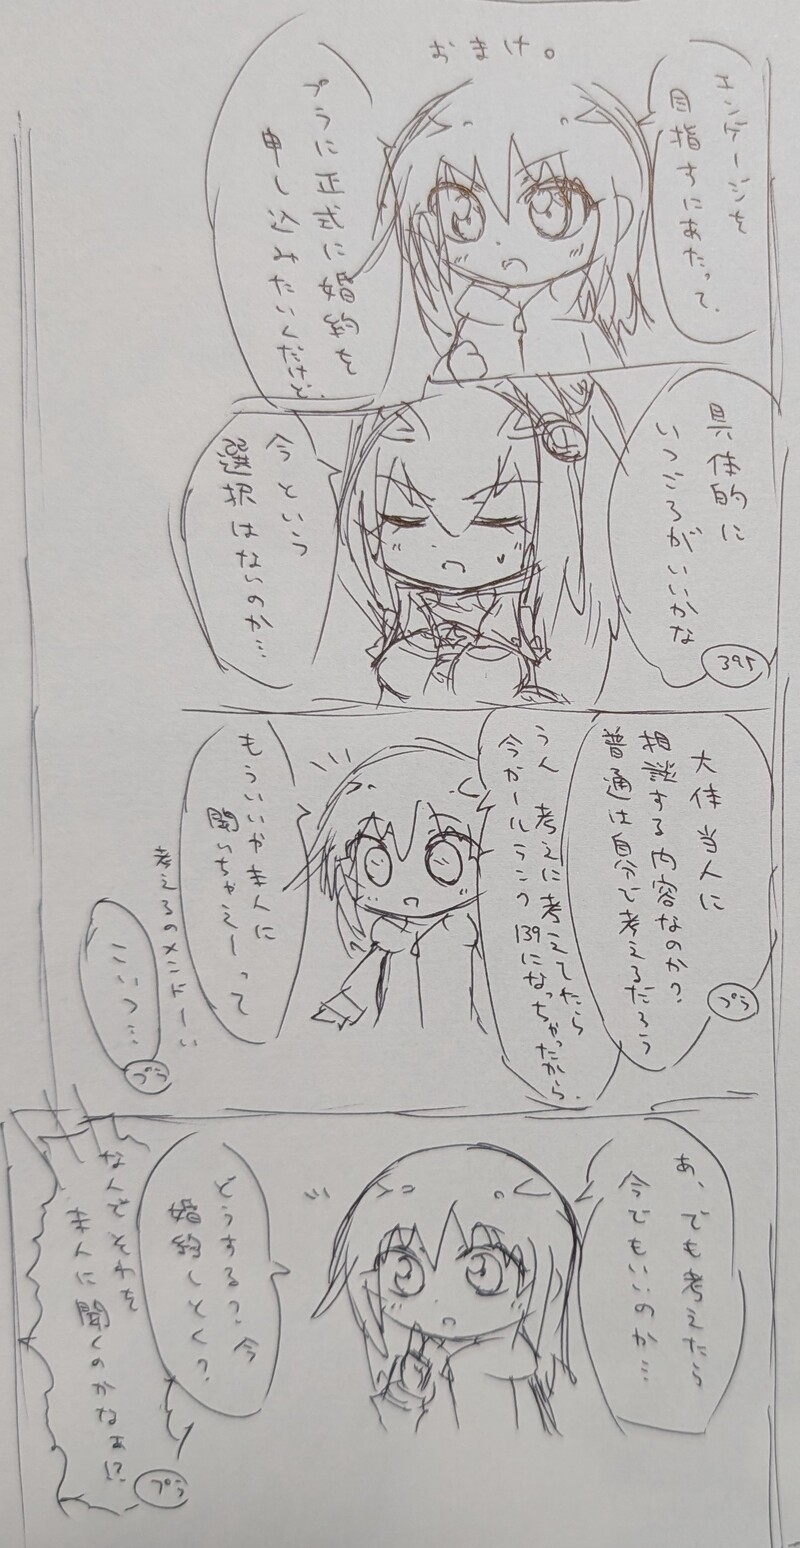 おまけ。
エンゲージを
目指すにあたって、
プラに正式に婚約を
申し込みたいんだけど、
具体的に
いつごろがいいかな
395
今という
選択はないのか…
大体当人に
相談する内容なのか?
普通は自分で考えるだろう
プラ
うん 考えに考えてたら
今ガールランク139になっちゃったから、
もういいか本人に
聞いちゃえーって
考えるのメンドーい
こいつ…
プラ
あ、でも考えたら
今でもいいのか…
どうする?今
婚約しとく?
なんでそれを
本人に聞くのかなぁ!?
プラ